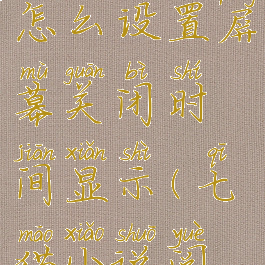 怎么设置屏
mù guān bì shí
幕关闭时
jiān xiǎn shì qī
间显示(七
māo xiǎo shuō yuè
猫小说阅